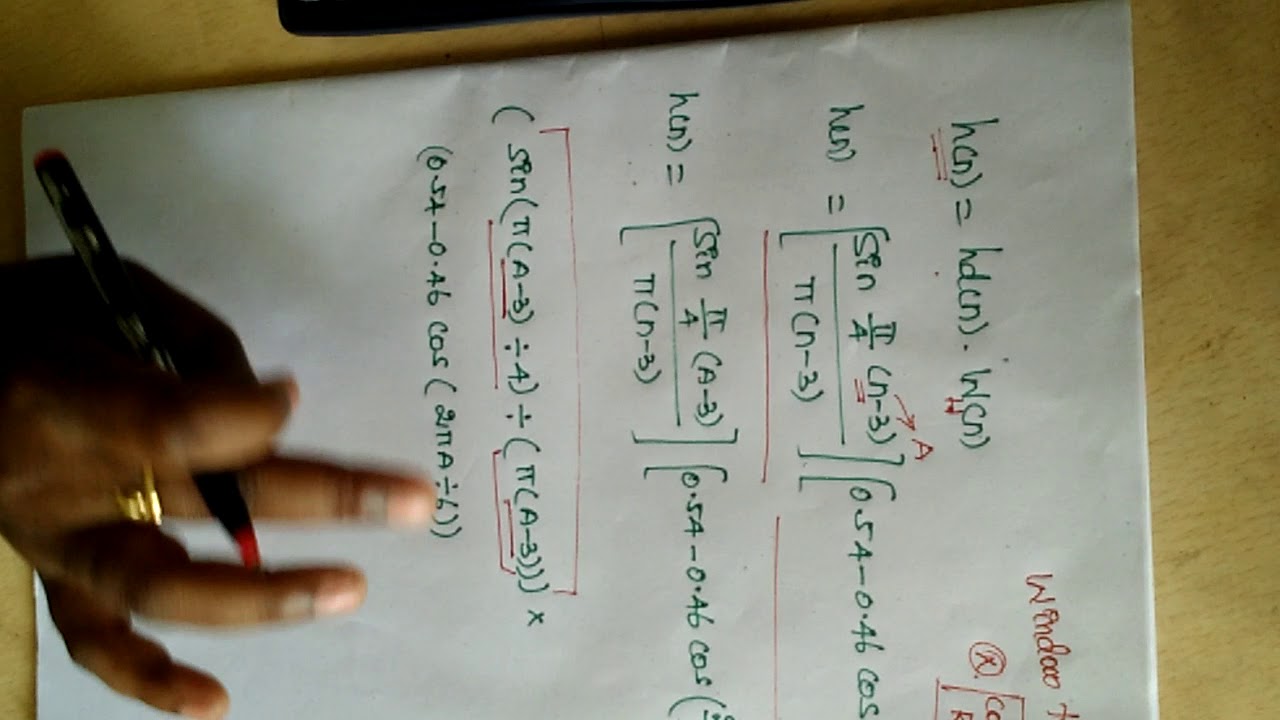 Window
h(n) = hd(n). WH(n)
h(n) = [sin π/4 (n-3) / π(n-3)] [0.54-0.46 cos
A
h(n) = [sin π/4 (A-3) / π(n-3)] [0.54-0.46 cos(
( sin(π(A-3)÷4)÷(π(A-3))) ×
(0.54-0.46 cos(2πA÷6))